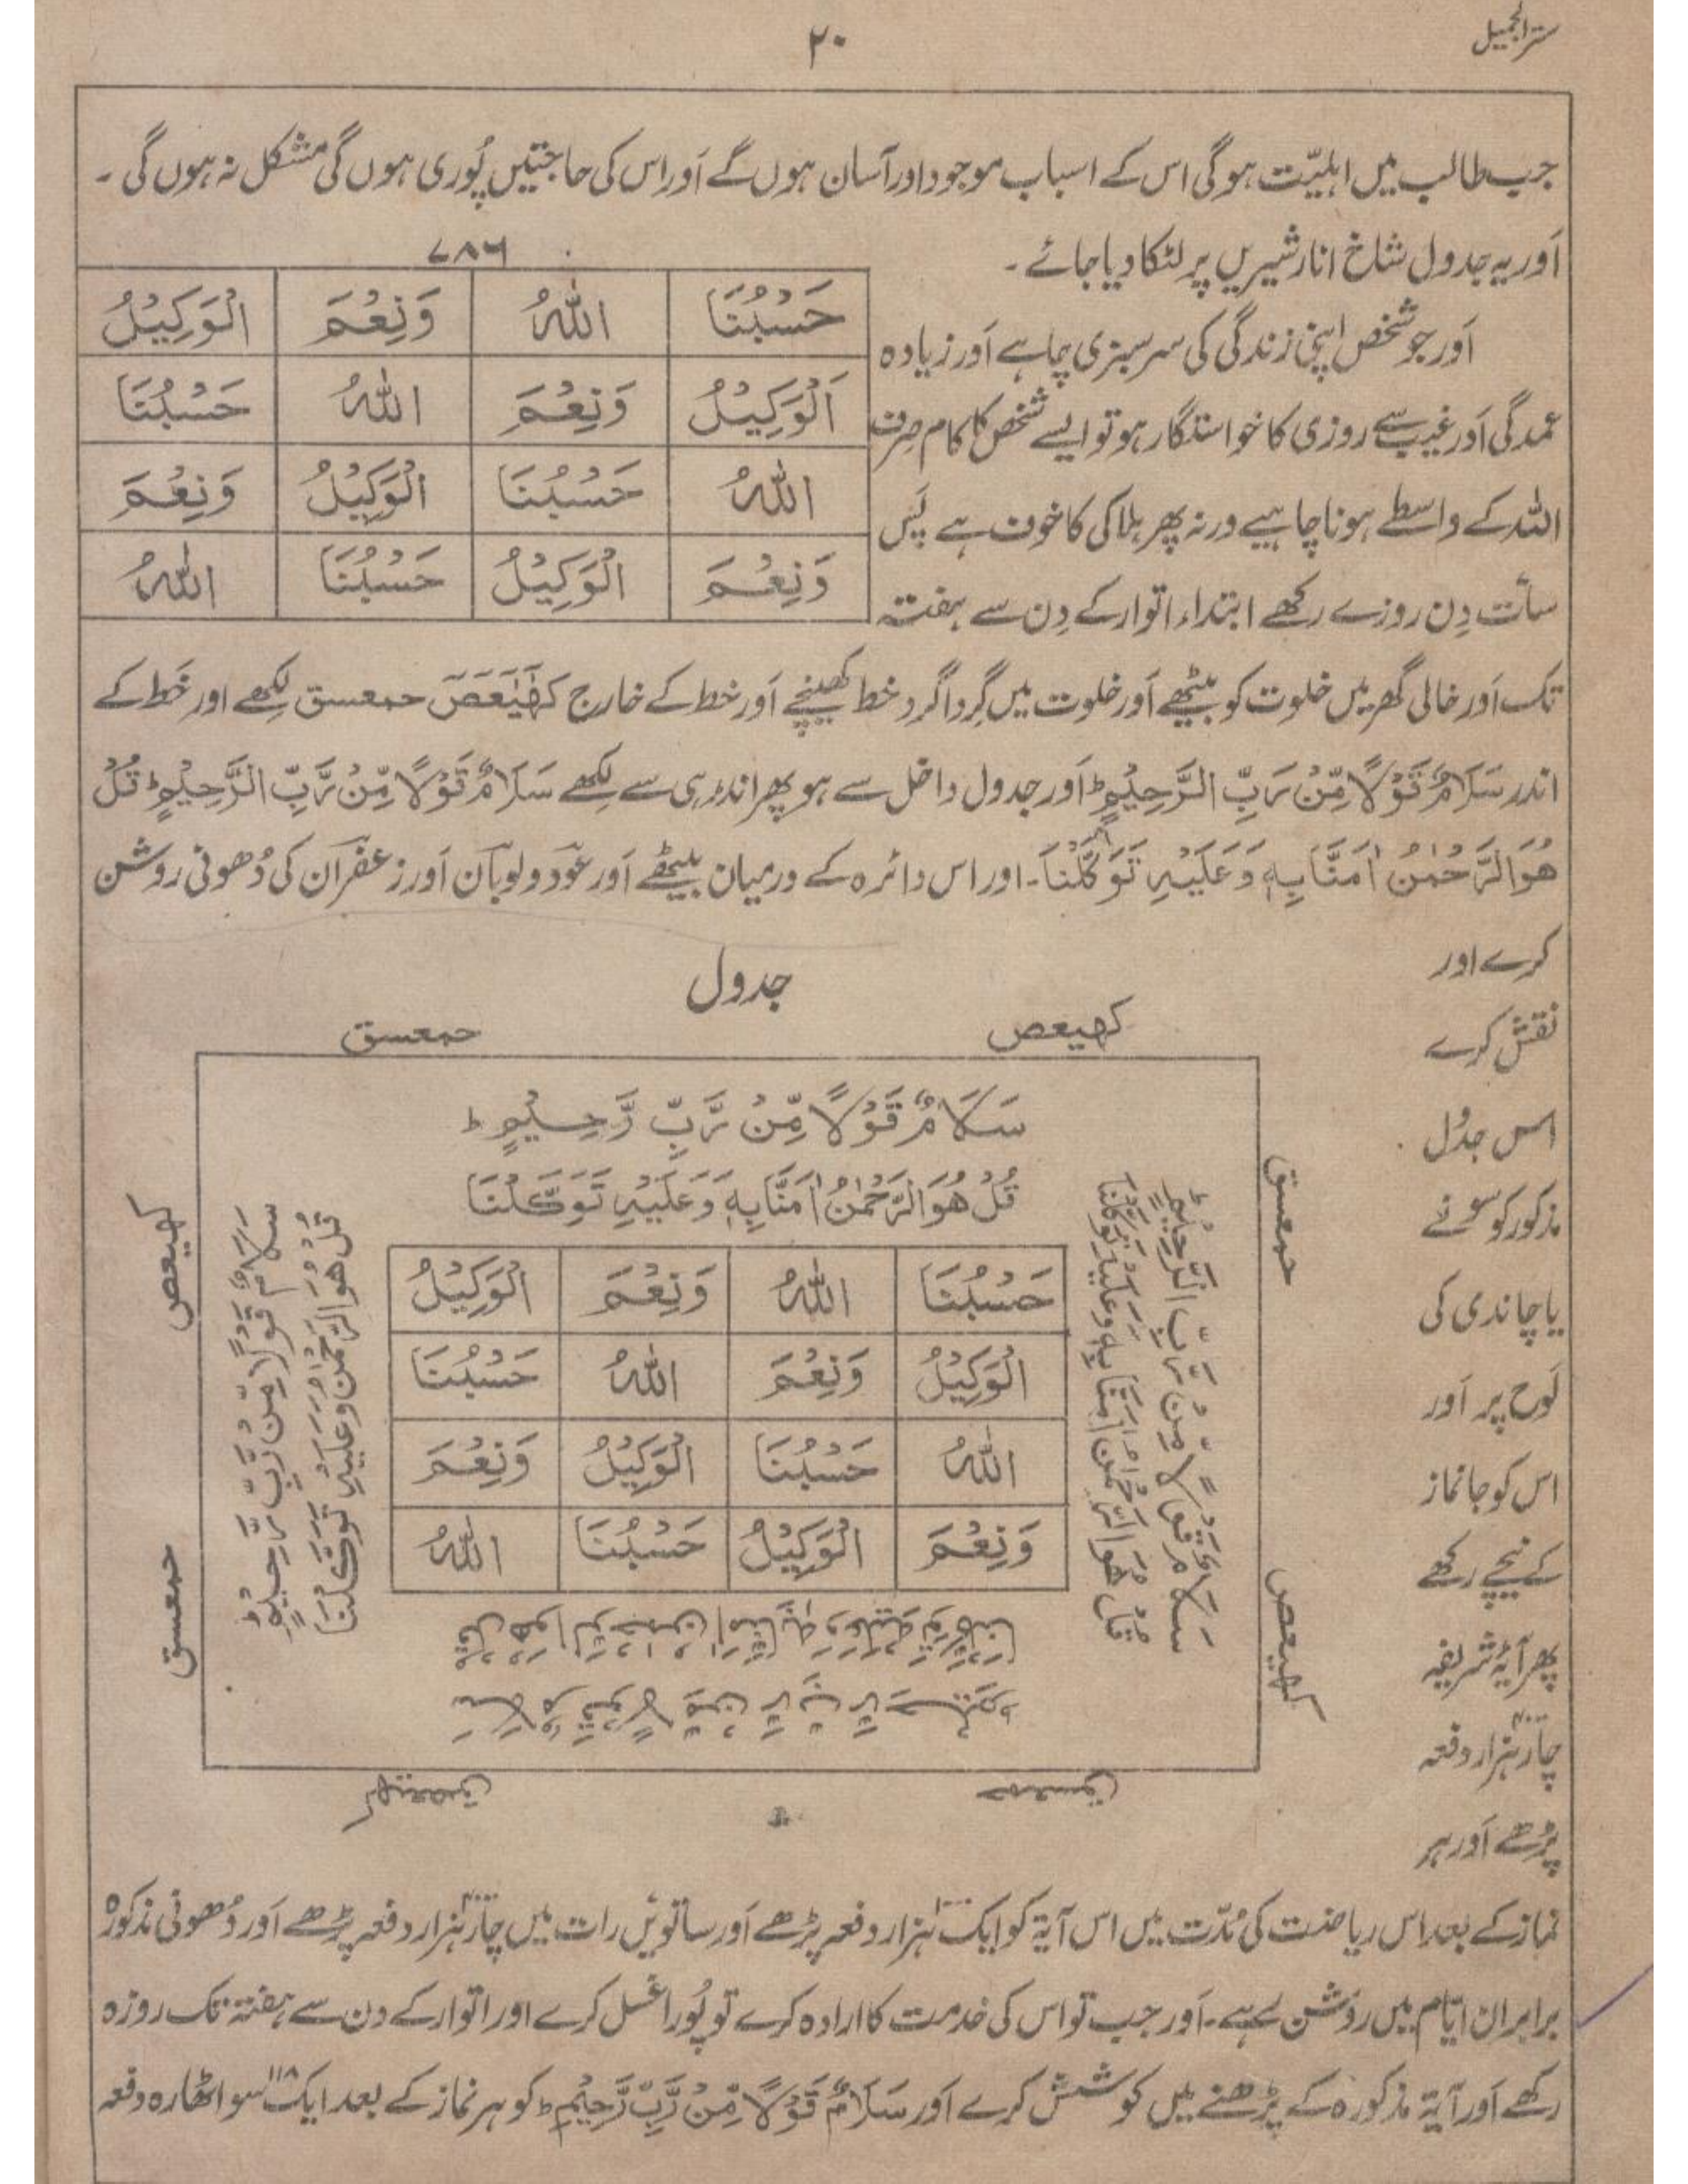 سترالجمیل
۲۰
جب طالب میں اہلیّت ہوگی اس کے اسباب موجود اور آسان ہوں گے اَور اس کی حاجتیں پُوری ہوں گی مشکل نہ ہوں گی ۔
اَور یہ جدول شاخ انار شیریں پر لٹکا دیا جائے ۔
۷۸۶
حَسْبُنَا اللّٰهُ وَنِعْمَ الْوَكِيْلُ
اَلْوَكِيْلُ وَنِعْمَ اللّٰهُ حَسْبُنَا
اللّٰهُ حَسْبُنَا الْوَكِيْلُ وَنِعْمَ
وَنِعْمَ الْوَكِيْلُ حَسْبُنَا اللّٰهُ
اَور جو شخص اپنی زندگی کی سرسبزی چاہے اَور زیادہ
عمدگی اَور غیب سے روزی کا خواستگار ہو تو ایسے شخص کا کام صِرف
اللہ کے واسطے ہونا چاہیے ورنہ پھر ہلاکی کا خوف ہے پَس
سات دِن روزے رکھے ابتداء اتوار کے دِن سے ہفتہ
تک اَور خالی گھر میں خلوت کو بیٹھے اَور خلوت میں گِردا گرد خط کھینچے اَور خط کے خارج كٓهٰيٰعٓصٓ حمعسق لکھے اور خَط کے
اندر سَلَامٌ قَوْلًا مِّنْ رَبِّ الرَّحِيْمٍ ط اَور جدول داخل سے ہو پھر اندر ہی سے لکھے سَلَامٌ قَوْلًا مِّنْ رَّبِّ الرَّحِيْمٍ ط قُلْ
هُوَ الرَّحْمٰنُ اٰمَنَّا بِهٖ وَعَلَيْهِ تَوَكَّلْنَا ۔ اور اس دائرہ کے درمیان بیٹھے اَور عود و لوبان اَور زعفران کی دُھونی روشن
کرے اور
نقش کرے
اس جدول
مذکور کو سونے
یا چاندی کی
لَوح پر اَور
اس کو جانماز
کے نیچے رکھے
پھر آیۂ شریفہ
چار ہزار دفعہ
پڑھے اَور ہر
جدول
کهیعص حمعسق
سَلَامٌ قَوْلًا مِّنْ رَّبِّ رَّحِيْمٍ ط
قُلْ هُوَ الرَّحْمٰنُ اٰمَنَّا بِهٖ وَعَلَيْهِ تَوَكَّلْنَا
حَسْبُنَا اللّٰهُ وَنِعْمَ الْوَكِيْلُ
الْوَكِيْلُ وَنِعْمَ اللّٰهُ حَسْبُنَا
اللّٰهُ حَسْبُنَا الْوَكِيْلُ وَنِعْمَ
وَنِعْمَ الْوَكِيْلُ حَسْبُنَا اللّٰهُ
حمعسق
کهیعص
سَلَامٌ قَوْلًا مِّنْ رَّبِّ الرَّحِيْمٍ ط
قُلْ هُوَ الرَّحْمٰن اٰمَنَّا بِهٖ وَعَلَيْهِ تَوَكَّلْنَا
کهیعص
حمعسق
سَلَامٌ قَوْلًا مِّنْ رَّبِّ رَّحِيْمٍ ط
قُلْ هُوَ الرَّحْمٰن وَعَلَيْهِ تَوَكَّلْنَا
قُلْ هُوَ الرَّحْمٰن اٰمَنَّا بِهٖ وَعَلَيْهِ تَوَكَّلْنَا
سَلَامٌ قَوْلًا مِّنْ رَّبِّ رَّحِيْمٍ
حمعسق کهیعص
نماز کے بعد اس ریاضت کی مُدّت میں اس آیۃ کو ایک ہزار دفعہ پڑھے اَور ساتویں رات میں چار ہزار دفعہ پڑھے اَور دُھونی مذکورہ
برابر ان ایّام میں روشن رہے ۔ اَور جب تو اس کی خدمت کا ارادہ کرے تو پُورا غسل کرے اور اتوار کے دن سے ہفتہ تک روزہ
رکھے اَور آیۃ مذکورہ کے پڑھنے میں کوشش کرے اَور سَلَامٌ قَوْلًا مِّنْ رَّبِّ رَّحِيْمٍ ط کو ہر نماز کے بعد ایک سو اٹھارہ ۱۱۸ دفعہ